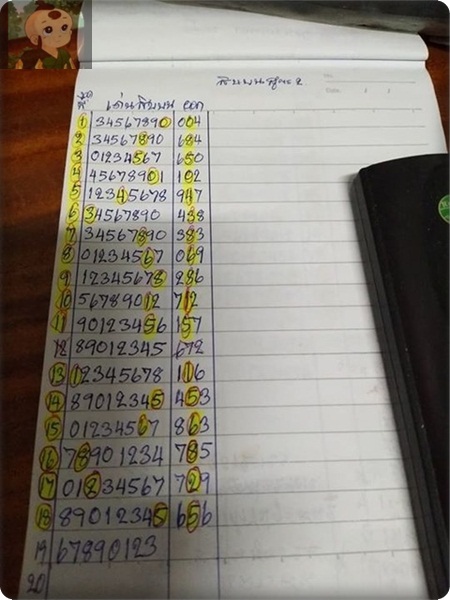 สิบบนสูตร 2
ชุดที่ เด่นสิบบน ออก
1 34567890 004
2 34567890 684
3 01234567 650
4 45678901 102
5 12345678 947
6 34567890 438
7 34567890 383
8 01234567 069
9 12345678 286
10 56789012 712
11 90123456 157
12 89012345 672
13 12345678 116
14 89012345 453
15 01234567 863
16 78901234 785
17 01234567 729
18 89012345 656
19 67890123
20